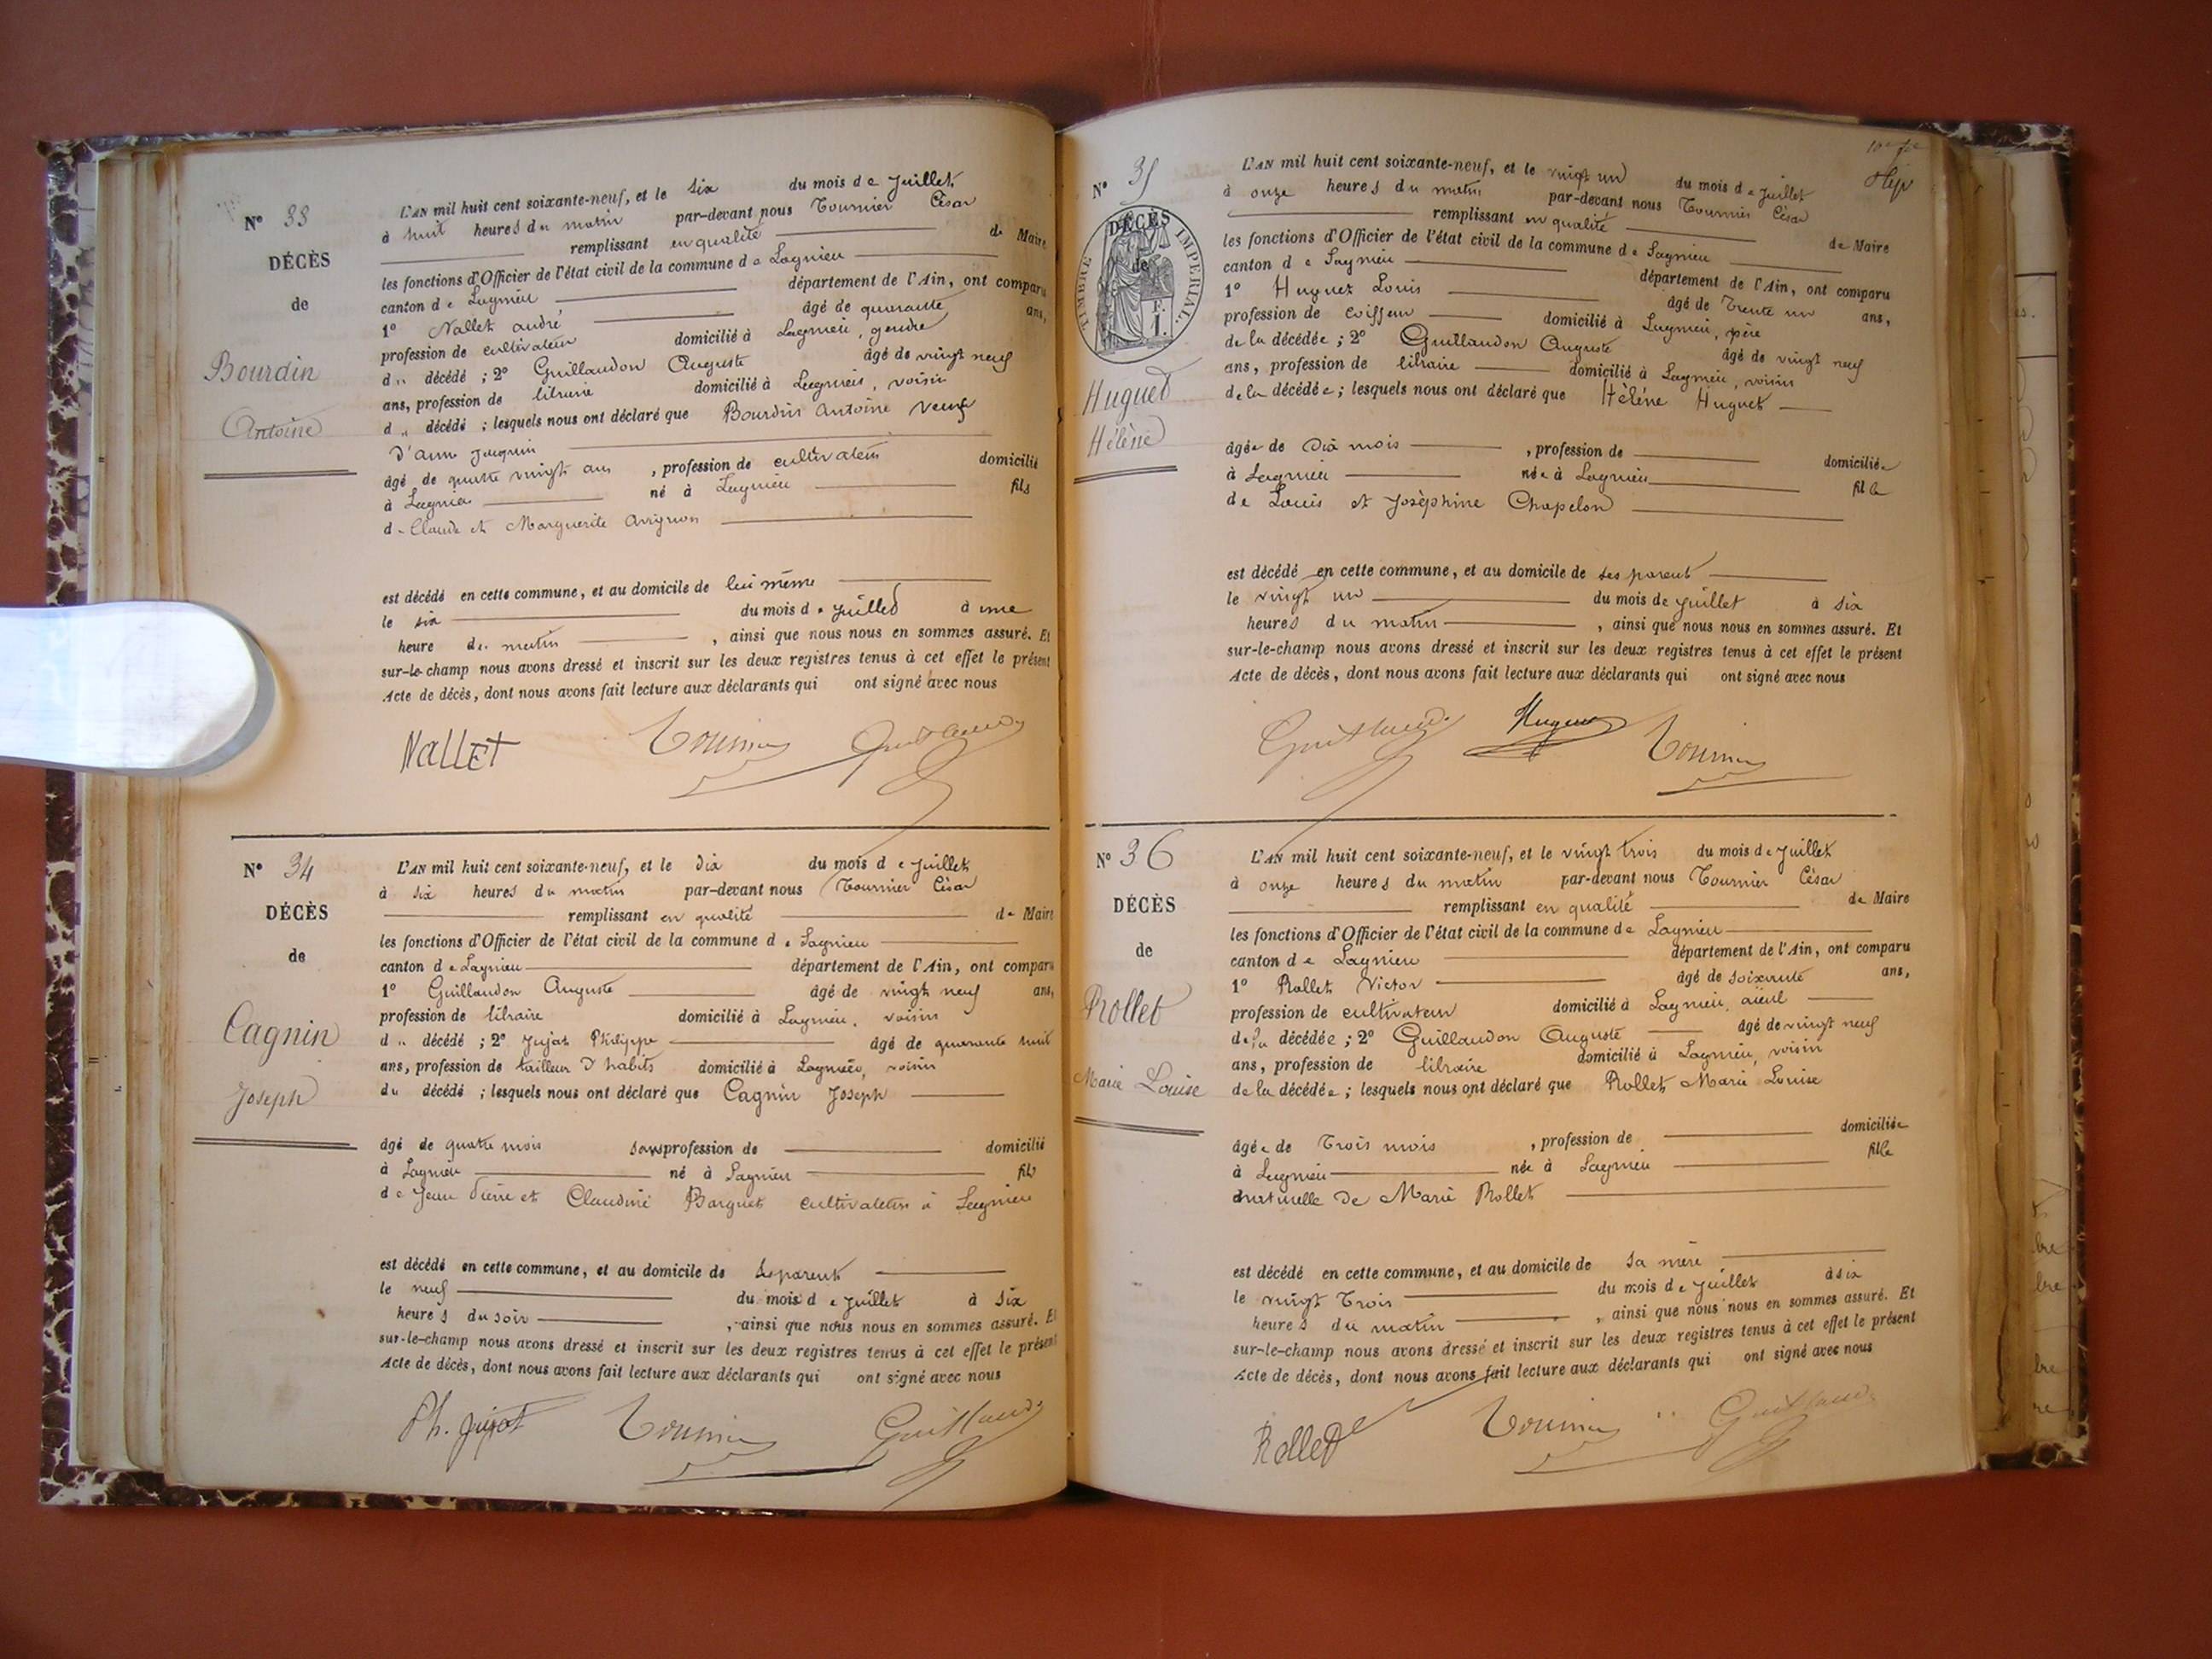 N° 33
DÉCÈS
de
Bourdin
Antoine
L'AN mil huit cent soixante-neuf, et le six du mois de Juillet
à huit heures du matin par-devant nous Tournier César
remplissant en qualité de Maire
les fonctions d'Officier de l'état civil de la commune de Lagnieu
canton de Lagnieu département de l'Ain, ont comparu
1° Nallet andré âgé de quarante ans,
profession de cultivateur domicilié à Lagnieu, gendre
du décédé ; 2° Guillaudon Auguste âgé de vingt neuf
ans, profession de libraire domicilié à Lagnieu, voisin
du décédé ; lesquels nous ont déclaré que Bourdin Antoine veuf
d'anne Jacquin
âgé de quatre vingt ans , profession de cultivateur domicilié
à Lagnieu né à Lagnieu fils
de Claude et Marguerite Avignon
est décédé en cette commune, et au domicile de lui même
le six du mois de Juillet à une
heure du matin , ainsi que nous nous en sommes assuré. Et
sur-le-champ nous avons dressé et inscrit sur les deux registres tenus à cet effet le présent
Acte de décès, dont nous avons fait lecture aux déclarants qui ont signé avec nous
Nallet Tournier
N° 34
DÉCÈS
de
Cagnin
Joseph
L'AN mil huit cent soixante-neuf, et le dix du mois de Juillet
à six heures du matin par-devant nous Tournier César
remplissant en qualité de Maire
les fonctions d'Officier de l'état civil de la commune de Lagnieu
canton de Lagnieu département de l'Ain, ont comparu
1° Guillaudon Auguste âgé de vingt neuf ans,
profession de libraire domicilié à Lagnieu, voisin
du décédé ; 2° Jujat Philippe âgé de quarante huit
ans, profession de tailleur d'habits domicilié à Lagnieu, voisin
du décédé ; lesquels nous ont déclaré que Cagnin Joseph
âgé de quatre mois sans profession de domicilié
à Lagnieu né à Lagnieu fils
de Jean Pierre et Claudine Barguet cultivateurs à Lagnieu
est décédé en cette commune, et au domicile de ses parents
le neuf du mois de Juillet à six
heures du soir , ainsi que nous nous en sommes assuré. Et
sur-le-champ nous avons dressé et inscrit sur les deux registres tenus à cet effet le présent
Acte de décès, dont nous avons fait lecture aux déclarants qui ont signé avec nous
Ph. Jujat Tournier
N° 35
DÉCÈS
de
TIMBRE IMPERIAL.
F.
1.
Huguet
Hélène
L'AN mil huit cent soixante-neuf, et le vingt un du mois de Juillet
à onze heures du matin par-devant nous Tournier César
remplissant en qualité de Maire
les fonctions d'Officier de l'état civil de la commune de Lagnieu
canton de Lagnieu département de l'Ain, ont comparu
1° Huguet Louis âgé de Trente un ans,
profession de coiffeur domicilié à Lagnieu, père
de la décédée ; 2° Guillaudon Auguste âgé de vingt neuf
ans, profession de libraire domicilié à Lagnieu, voisin
de la décédée ; lesquels nous ont déclaré que Hélène Huguet
âgée de dix mois , profession de domiciliée
à Lagnieu née à Lagnieu fille
de Louis et Joséphine Chapelon
est décédé en cette commune, et au domicile de ses parents
le vingt un du mois de Juillet à six
heures du matin , ainsi que nous nous en sommes assuré. Et
sur-le-champ nous avons dressé et inscrit sur les deux registres tenus à cet effet le présent
Acte de décès, dont nous avons fait lecture aux déclarants qui ont signé avec nous
Huguet Tournier
N° 36
DÉCÈS
de
Rollet
Marie Louise
L'AN mil huit cent soixante-neuf, et le vingt trois du mois de Juillet
à onze heures du matin par-devant nous Tournier César
remplissant en qualité de Maire
les fonctions d'Officier de l'état civil de la commune de Lagnieu
canton de Lagnieu département de l'Ain, ont comparu
1° Rollet Victor âgé de soixante ans,
profession de cultivateur domicilié à Lagnieu, aïeul
de la décédée ; 2° Guillaudon Auguste âgé de vingt neuf
ans, profession de libraire domicilié à Lagnieu, voisin
de la décédée ; lesquels nous ont déclaré que Rollet Marie Louise
âgée de Trois mois , profession de domiciliée
à Lagnieu née à Lagnieu fille
naturelle de Marie Rollet
est décédé en cette commune, et au domicile de sa mère
le vingt trois du mois de Juillet à six
heures du matin , ainsi que nous nous en sommes assuré. Et
sur-le-champ nous avons dressé et inscrit sur les deux registres tenus à cet effet le présent
Acte de décès, dont nous avons fait lecture aux déclarants qui ont signé avec nous
Rollet Tournier